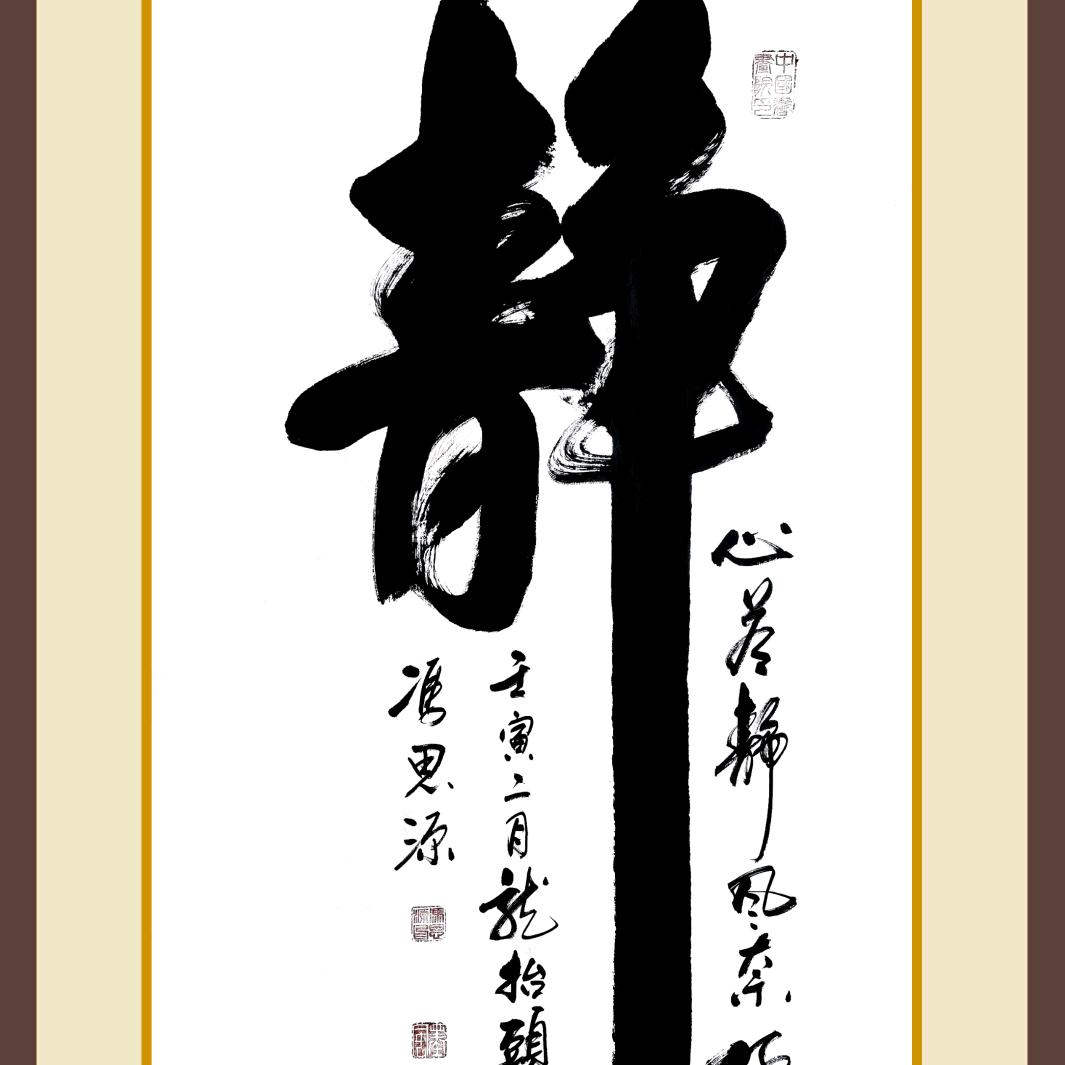 静
心若静風奈
壬寅二月龍抬頭
馮思源